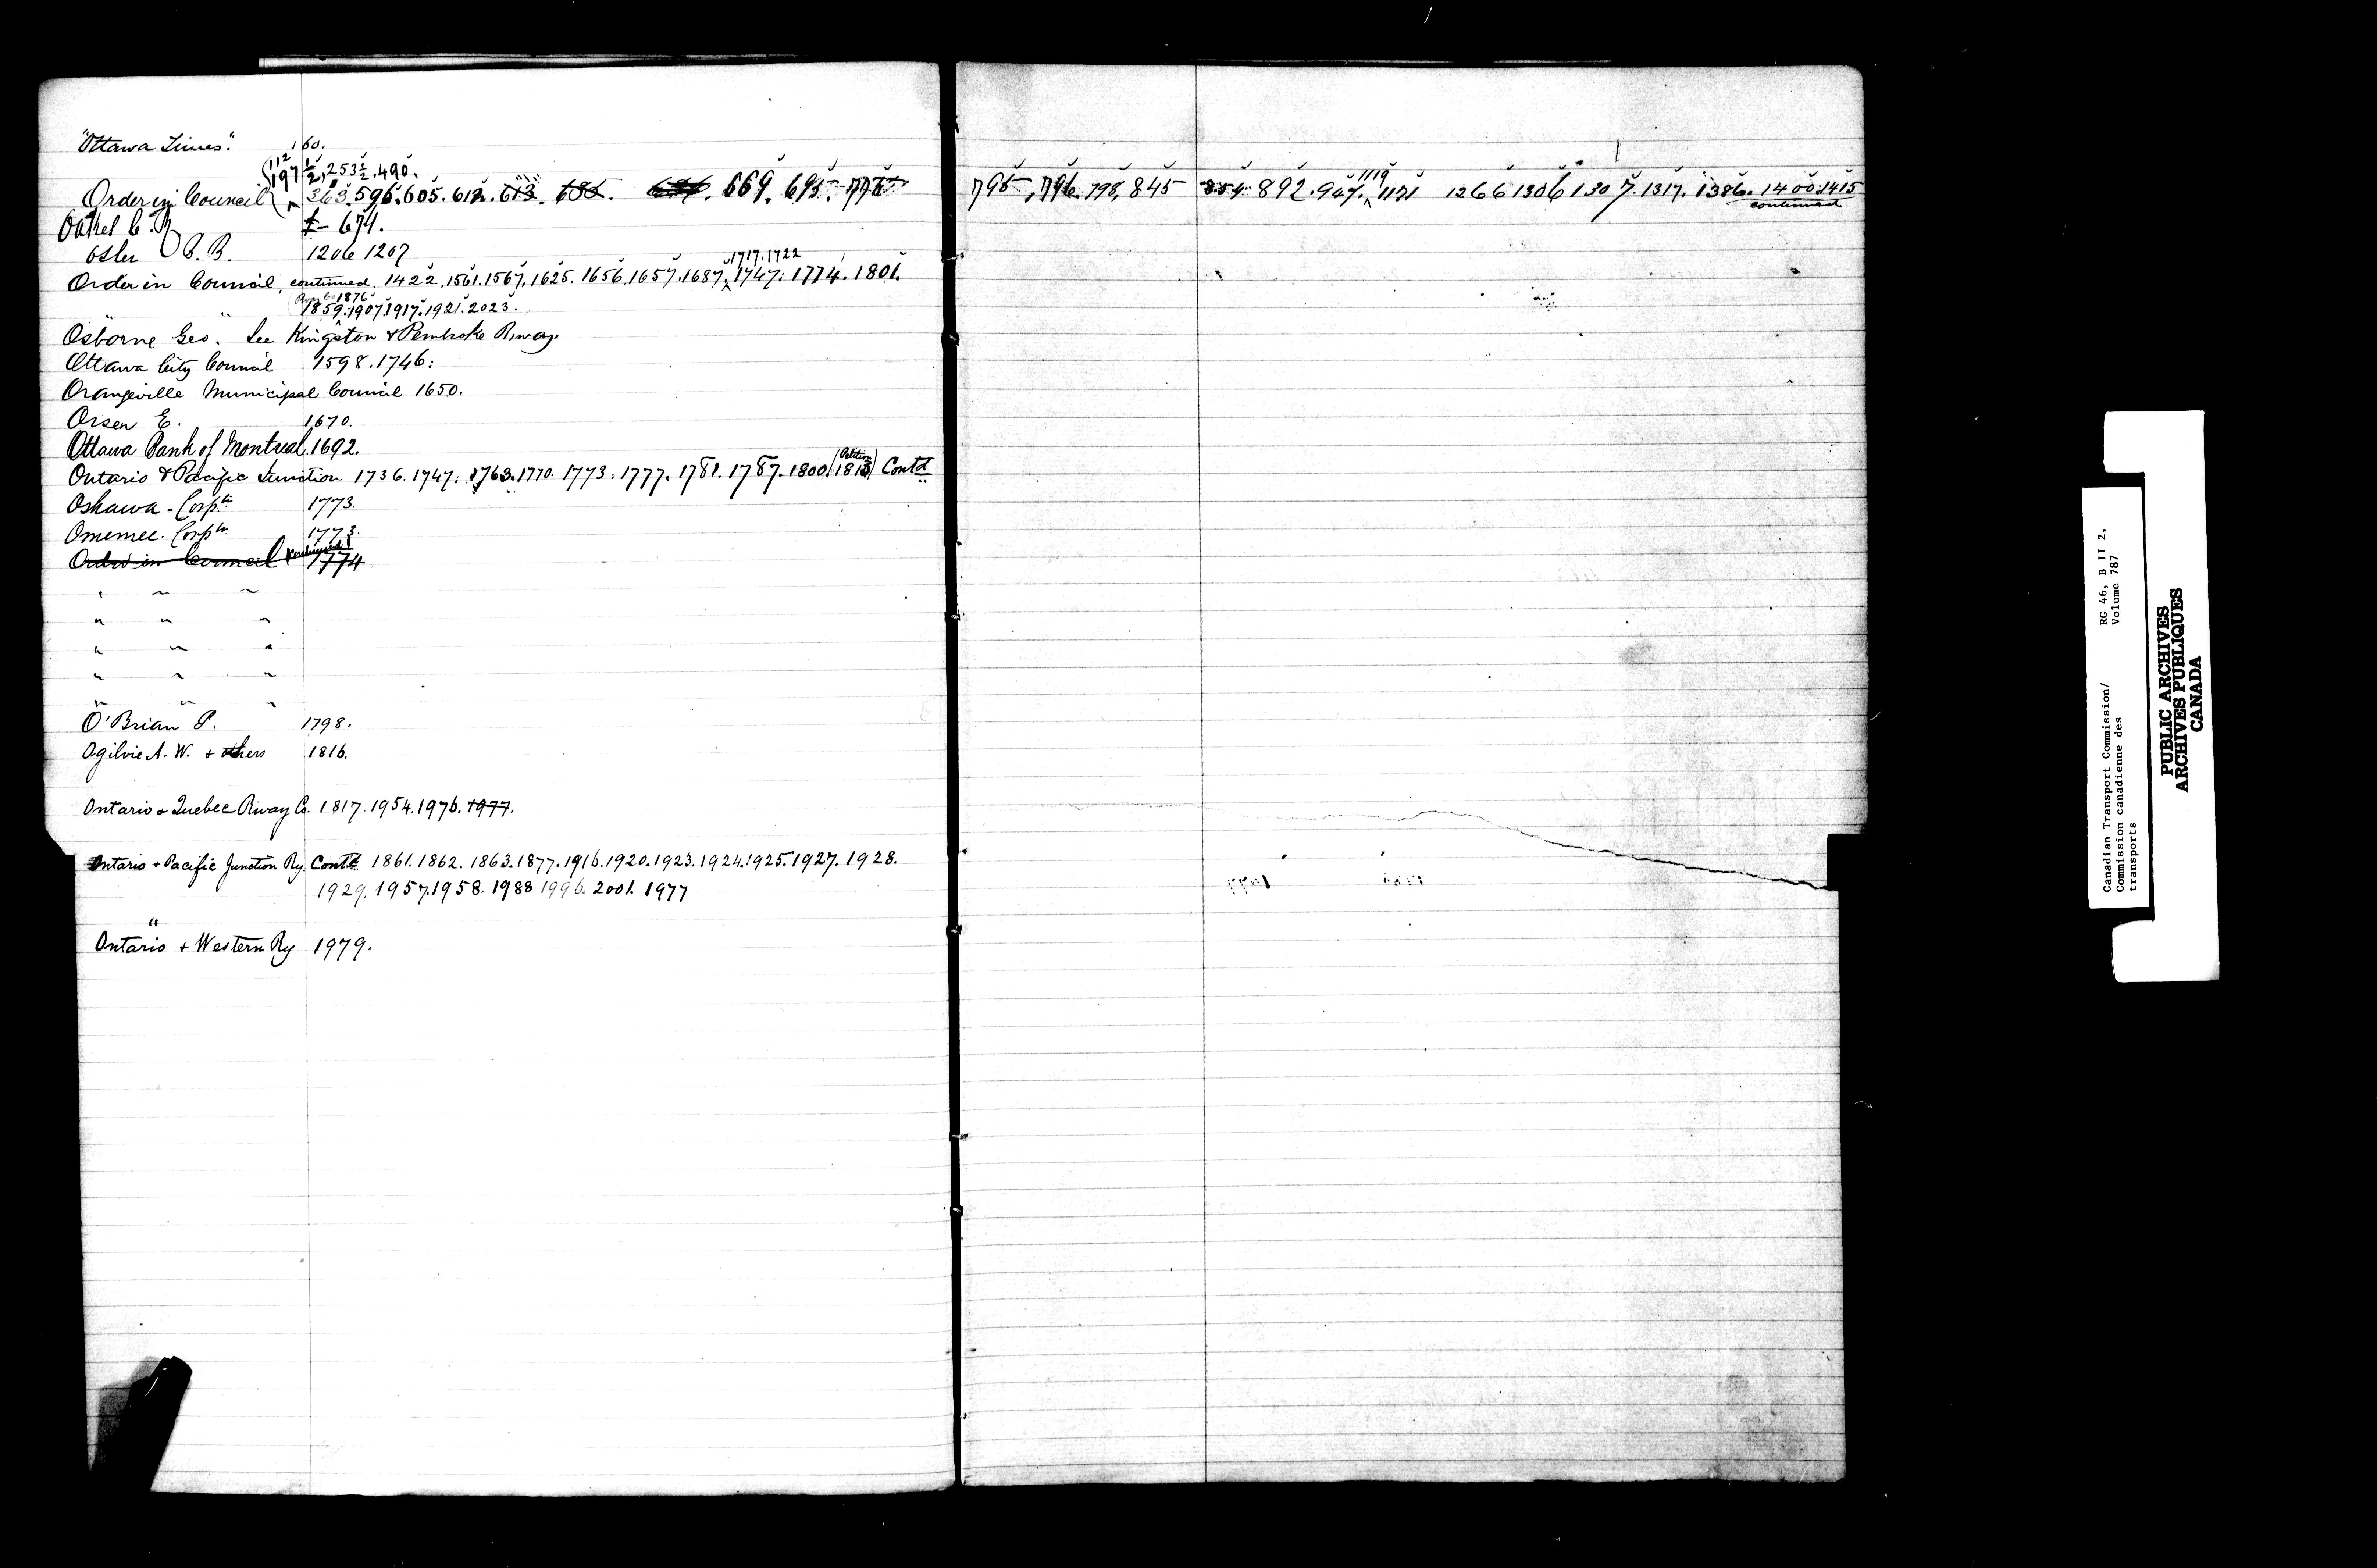 "Ottawa Times". 160.
112
197½, 253½. 490.
Order in Council 363. 596. 605. 612. 613. 669. 695. 795, 796. 798, 845 854 892. 947. 1119 1121 1266 1306 1307. 1317. 1386. 1400. 1415
continued
674.
Osler B. B. 1206 1207
1717. 1722
Order in Council, continued. 1422. 1561. 1567. 1625. 1656. 1657. 1687. 1747. 1774. 1801.
1876
" " 1859. 1907. 1917. 1921. 2023.
Osborne Geo. See Kingston & Pembroke Rway
Ottawa City Council 1598. 1746:
Orangeville Municipal Council 1650.
Orsen E. 1670.
Ottawa Bank of Montreal. 1692.
Ontario & Pacific Junction 1736. 1747: 1763. 1770. 1773. 1777. 1781. 1787. 1800. (Petition 1813) Contd
Oshawa - Corptn 1773.
Omemee. Corptn 1773.
Order in Council continued 1774
" " "
" " "
" " "
" " "
" " "
O'Brian P. 1798.
Ogilvie A. W. & others 1816.
Ontario & Quebec Rway Co. 1817. 1954. 1976. 1977.
Ontario & Pacific Junction Ry. Contd 1861. 1862. 1863. 1877. 1916. 1920. 1923. 1924. 1925. 1927. 1928.
1929. 1957. 1958. 1988 1996. 2001. 1977
"
Ontario & Western Ry 1979.
Canadian Transport Commission/
Commission canadienne des
transports
RG 46, B II 2,
Volume 787
PUBLIC ARCHIVES
ARCHIVES PUBLIQUES
CANADA